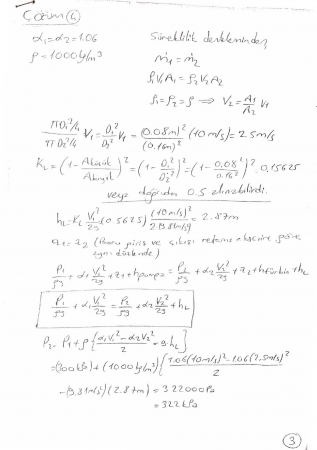 Çözüm (4)
α₁=α₂=1.06 Süreklilik denkleminden,
ρ=1000 kg/m³ ṁ₁=ṁ₂
ρ₁V₁A₁=ρ₂V₂A₂
ρ₁=ρ₂=ρ ⟹ V₂=A₁/A₂ V₁
(πD₁²/4)/(πD₂²/4) V₁=D₁²/D₂² V₁=(0.08m)²/(0.16m)² (10m/s)=2.5m/s
K_L=(1-Aküçük/Abüyük)²=(1-D₁²/D₂²)²=(1-0.08²/0.16²)²=0,15625
veya doğrudan 0.5 alınabilirdi.
h_L=K_L V₁²/2g=(0.5625)(10m/s)²/2×9.81m/s²=2.87m
z₁=z₂ (Boru giriş ve çıkışı referans eksenine göre
aynı düzlemde)
P₁/ρg+α₁V₁²/2g+z₁+hpompa=P₂/ρg+α₂V₂²/2g+z₂+htürbin+h_L
P₁/ρg+α₁V₁²/2g=P₂/ρg+α₂V₂²/2g+h_L
P₂=P₁+ρ{(α₁V₁²-α₂V₂²)/2-gh_L}
=(300kPa)+(1000kg/m³){(1.06(10m/s)²-1.06(2.5m/s)²)/2
-(9.81m/s²)(2.87m)=322000Pa
=322kPa
3